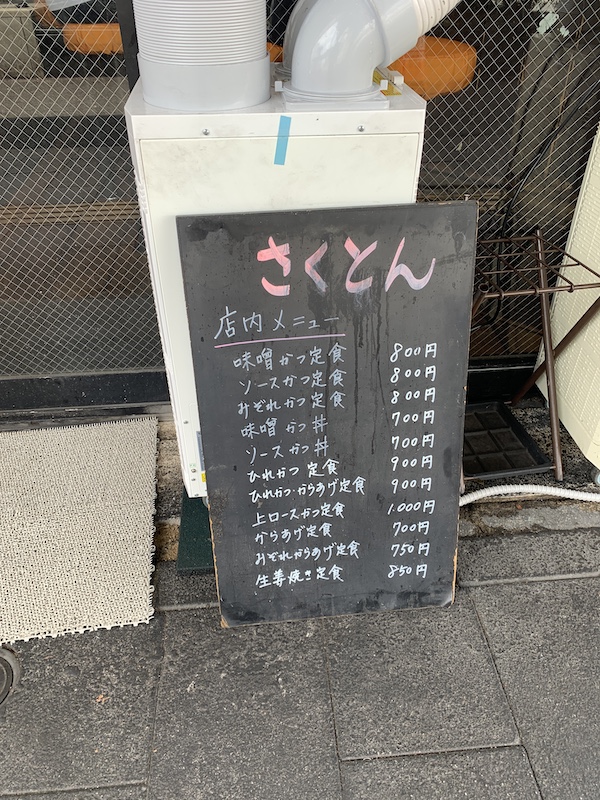 さくとん
店内メニュー
味噌かつ定食 800円
ソースかつ定食 800円
みぞれかつ定食 800円
味噌かつ丼 700円
ソースかつ丼 700円
ひれかつ定食 900円
ひれかつ・からあげ定食 900円
上ロースかつ定食 1.000円
からあげ定食 700円
みぞれからあげ定食 750円
生姜焼き定食 850円